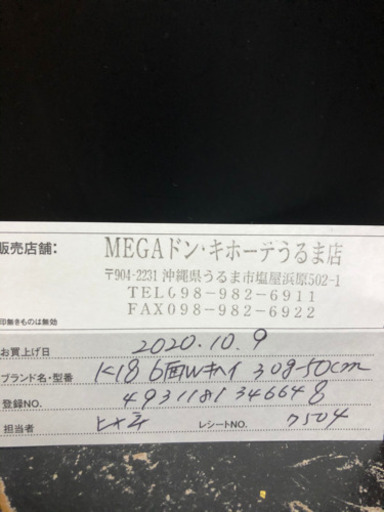 販売店舗:
MEGAドン・キホーテうるま店
〒904-2231 沖縄県うるま市塩屋浜原502-1
TEL098-982-6911
FAX098-982-6922
印無きものは無効
お買上げ日 2020.10.9
ブランド名・型番 K18 6面Wキヘイ 30g-50cm
登録NO. 4931181346648
担当者 レシートNO. 7504